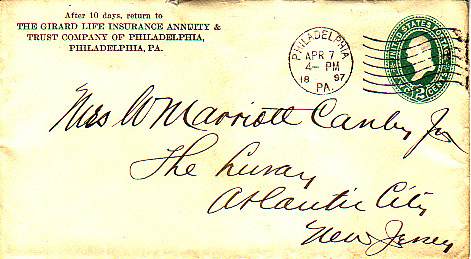 After 10 days, return to
THE GIRARD LIFE INSURANCE ANNUITY &
TRUST COMPANY OF PHILADELPHIA,
PHILADELPHIA, PA.
PHILADELPHIA
APR 7
4- PM
18 97
PA.
UNITED STATES POSTAGE
2
CENTS
Mrs W Marriott Canby Jr
The Luray
Atlantic City
New Jersey